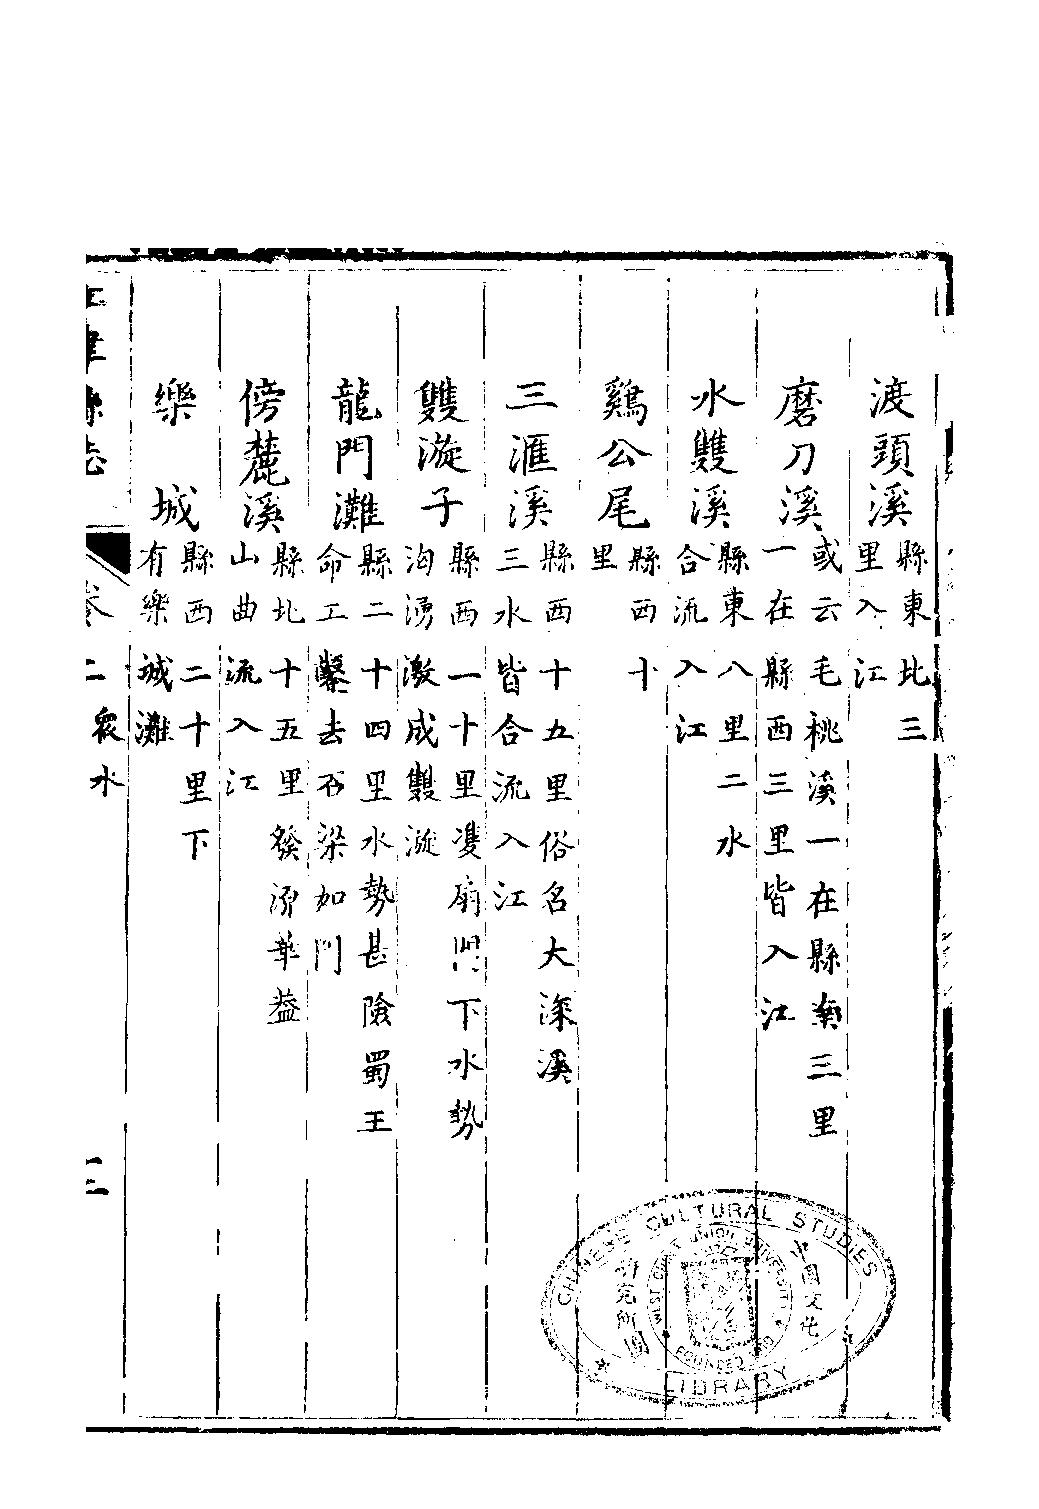 渡頭溪 縣東北三里入江
磨刀溪 或云毛桃溪一在縣南三里一在縣西三里皆入江
水雙溪 縣東八里二水合流入江
鷄公尾 縣西十里
三滙溪 縣西十五里俗名大深溪三水皆合流入江
雙漩子 縣西一十里雙扇門下水勢洶湧激成雙漩
龍門灘 縣二十四里水勢甚險蜀王命工鑿去石梁如門
傍麓溪 縣北十五里發源華葢山曲流入江
樂城 縣西二十里下有樂城灘
江津縣志
卷二 衆水
CHINESE CULTURAL STUDIES
LIBRARY
WEST CHINA UNION UNIVERSITY
FOUNDED 1910
中國文化
研究所圖